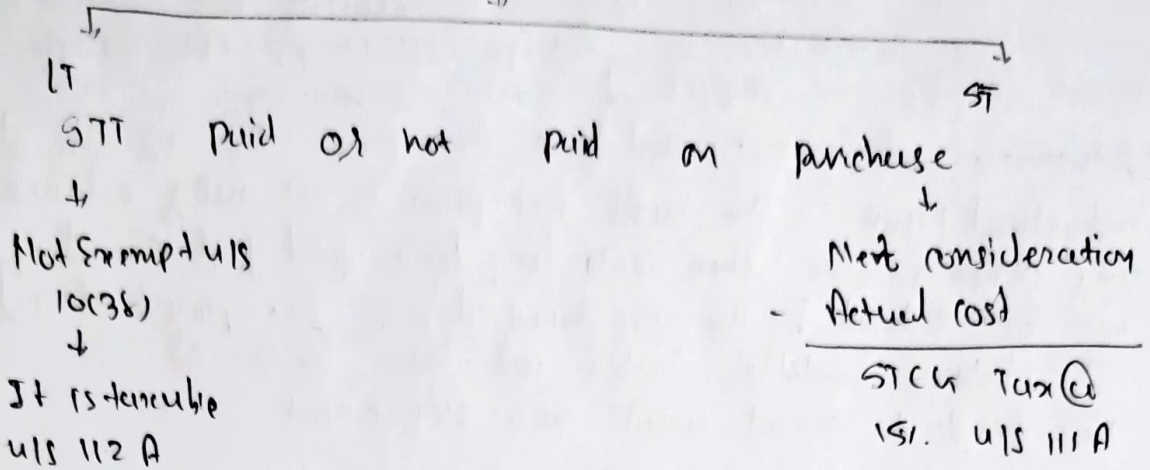 LT
ST
STT paid or not paid on purchase
Not Exempt u/s
10(38)
It is taxable
u/s 112 A
Net consideration
- Actual cost
STCG Tax @
15%. u/s 111 A